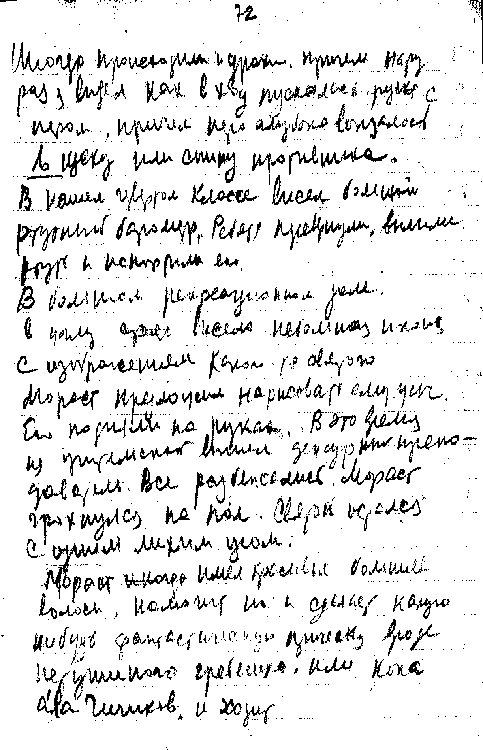 72
Иногда происходили и драки, причем не раз
раз я видел как в ход пускалась ручка с
пером, причем перо глубоко вонзалось
в щеку или спину противника.
В нашем третьем классе висел большой
ртутный барометр. Ребята перевернули, вылили
ртуть и испортили его.
В большом рекреационном зале
в углу висела небольшая икона
с изображением какого то святого
Мораст предложил нарисовать ему усы.
Его подняли на руках. В это время
из учительской вышел дежурный препо-
даватель. Все разбежались. Мораст
грохнулся на пол. Святой остался
с одним лихим усом.
Мораст имел красивые большие
волосы, намочит их и сделает какую
нибудь фантастическую прическу вроде
петушиного гребешка. или кока
а'ла Чичиков. и ходит